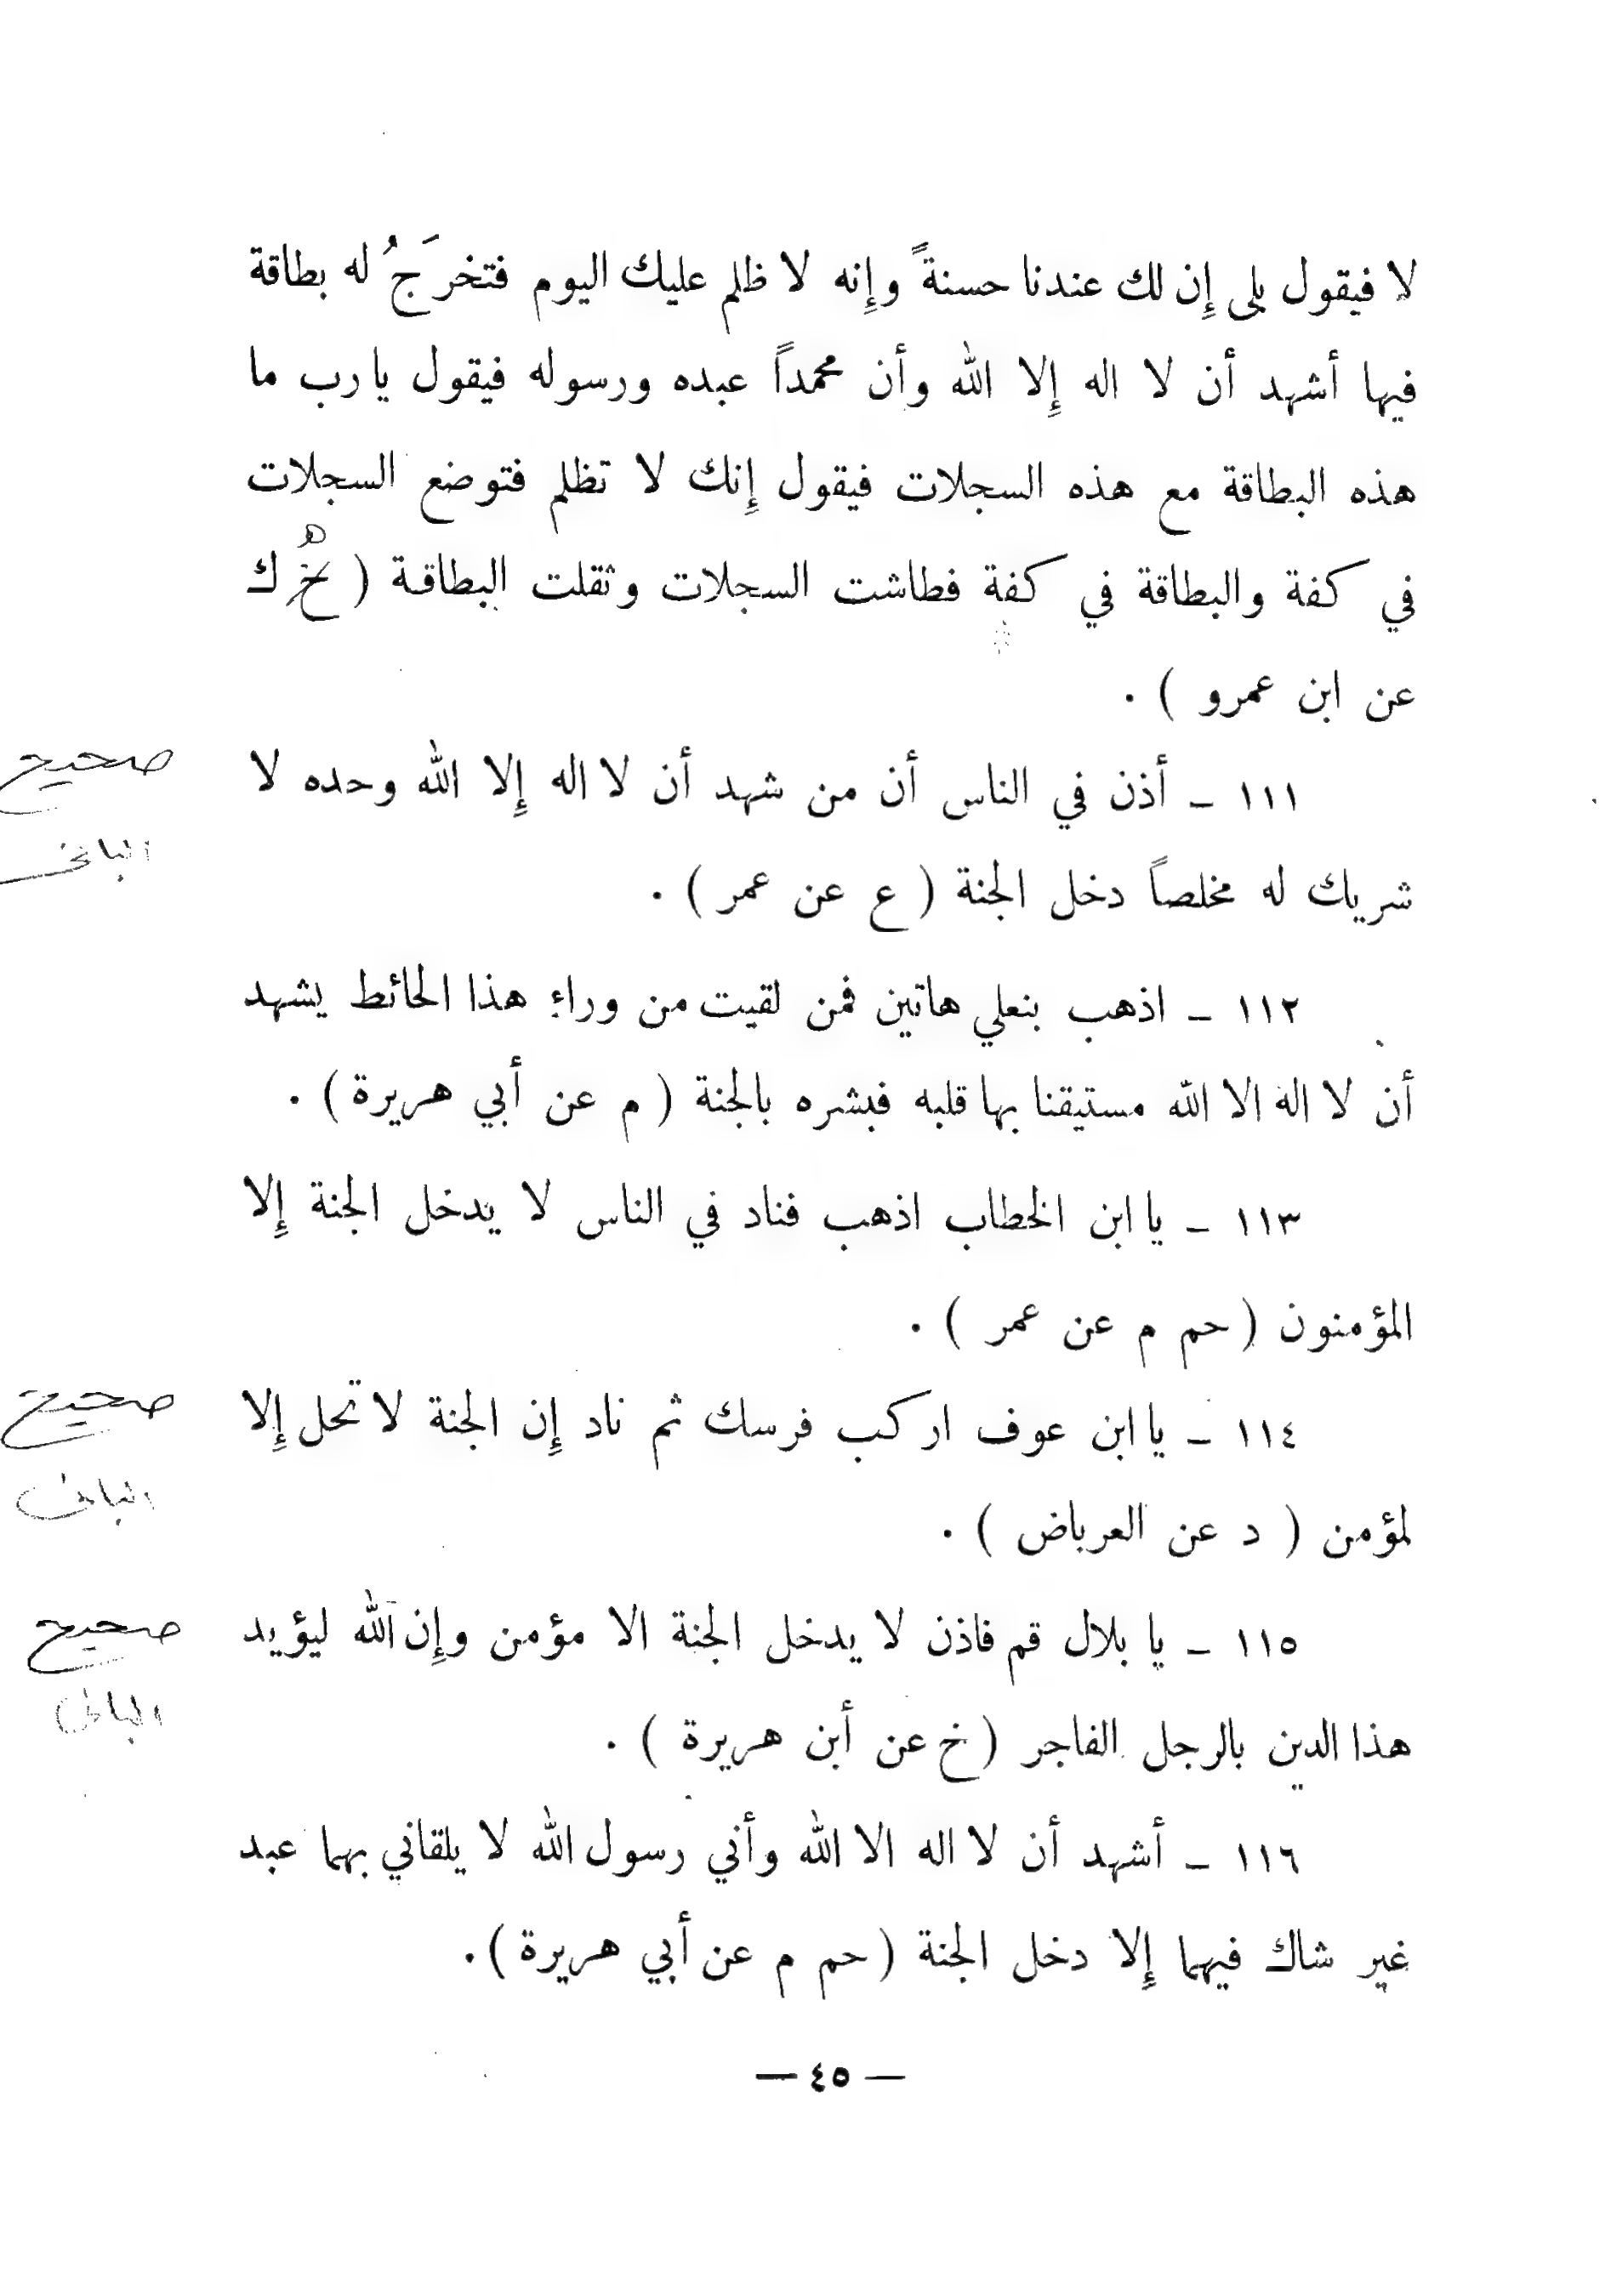 لا فيقول بلى إِن لك عندنا حسنةً وإِنه لا ظلم عليك اليوم فتخرَجُ له بطاقة
فيها أشهد أن لا اله إِلا الله وأن محمداً عبده ورسوله فيقول يا رب ما
هذه البطاقة مع هذه السجلات فيقول إِنك لا تظلم فتوضع السجلات
في كفة والبطاقة في كفة فطاشت السجلات وثقلت البطاقة ( ك
عن ابن عمرو ) .
١١١ ـ أذن في الناس أن من شهد أن لا اله إِلا الله وحده لا
شريك له مخلصاً دخل الجنة ( ع عن عمر ) .
صحيح
البانى
١١٢ ـ اذهب بنعلي هاتين فمن لقيت من وراء هذا الحائط يشهد
أن لا اله الا الله مستيقنا بها قلبه فبشره بالجنة ( م عن أبي هريرة ) .
١١٣ ـ يا ابن الخطاب اذهب فناد في الناس لا يدخل الجنة إِلا
المؤمنون ( حم م عن عمر ) .
١١٤ ـ يا ابن عوف اركب فرسك ثم ناد إِن الجنة لا تحل إِلا
لمؤمن ( د عن العرباض ) .
صحيح
البانى
١١٥ ـ يا بلال قم فاذن لا يدخل الجنة الا مؤمن وإِن الله ليؤيد
هذا الدين بالرجل الفاجر ( خ عن أبن هريرة ) .
صحيح
البانى
١١٦ ـ أشهد أن لا اله الا الله وأني رسول الله لا يلقاني بهما عبد
غير شاك فيهما إِلا دخل الجنة ( حم م عن أبي هريرة ) .
— ٤٥ —